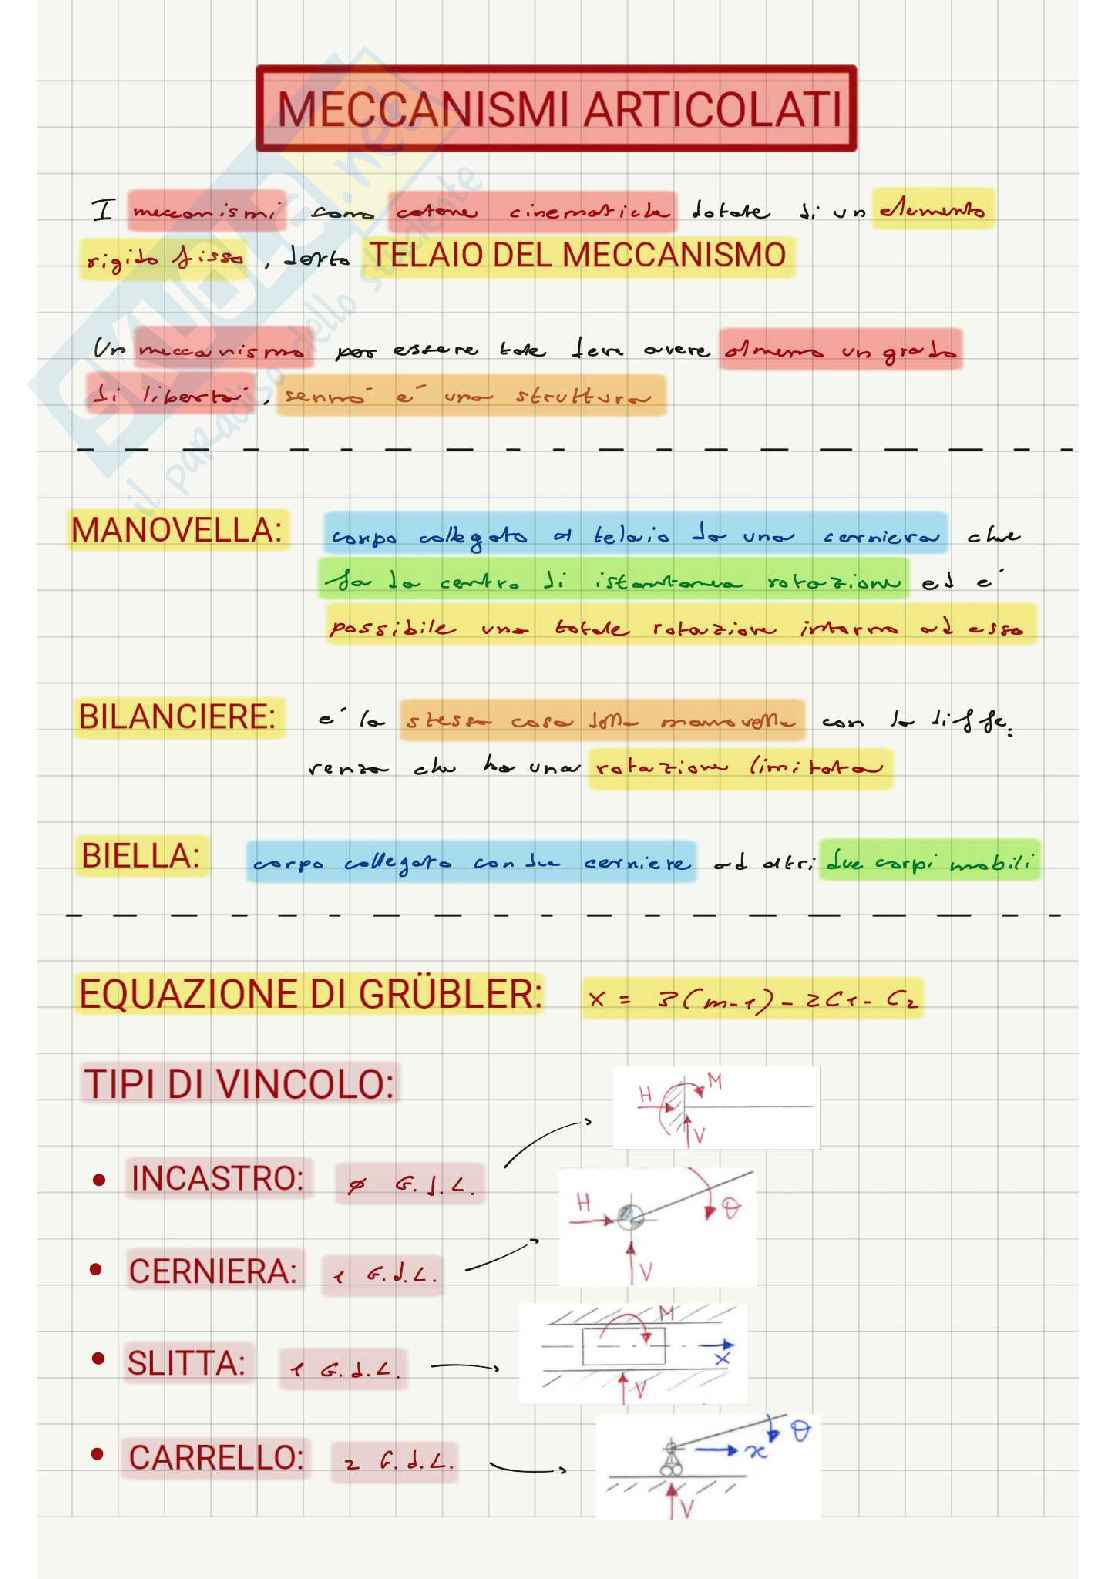 MECCANISMI ARTICOLATI
I meccanismi sono catene cinematiche dotate di un elemento
rigido fisso, detto TELAIO DEL MECCANISMO
Un meccanismo per essere tale deve avere almeno un grado
di libertà, sennò è una struttura
MANOVELLA: corpo collegato al telaio da una cerniera che
fa da centro di istantanea rotazione ed è
possibile una totale rotazione intorno ad esso
BILANCIERE: è la stessa cosa della manovella con la diffe-
renza che ha una rotazione limitata
BIELLA: corpo collegato con due cerniere ad altri due corpi mobili
EQUAZIONE DI GRÜBLER: x = 3(m-1) - 2C1 - C2
TIPI DI VINCOLO:
H M V
• INCASTRO: ø G.d.L.
H θ V
• CERNIERA: 1 G.d.L.
M x V
• SLITTA: 1 G.d.L.
θ x V
• CARRELLO: 2 G.d.L.
SKUOLA.net
il paradiso dello studente